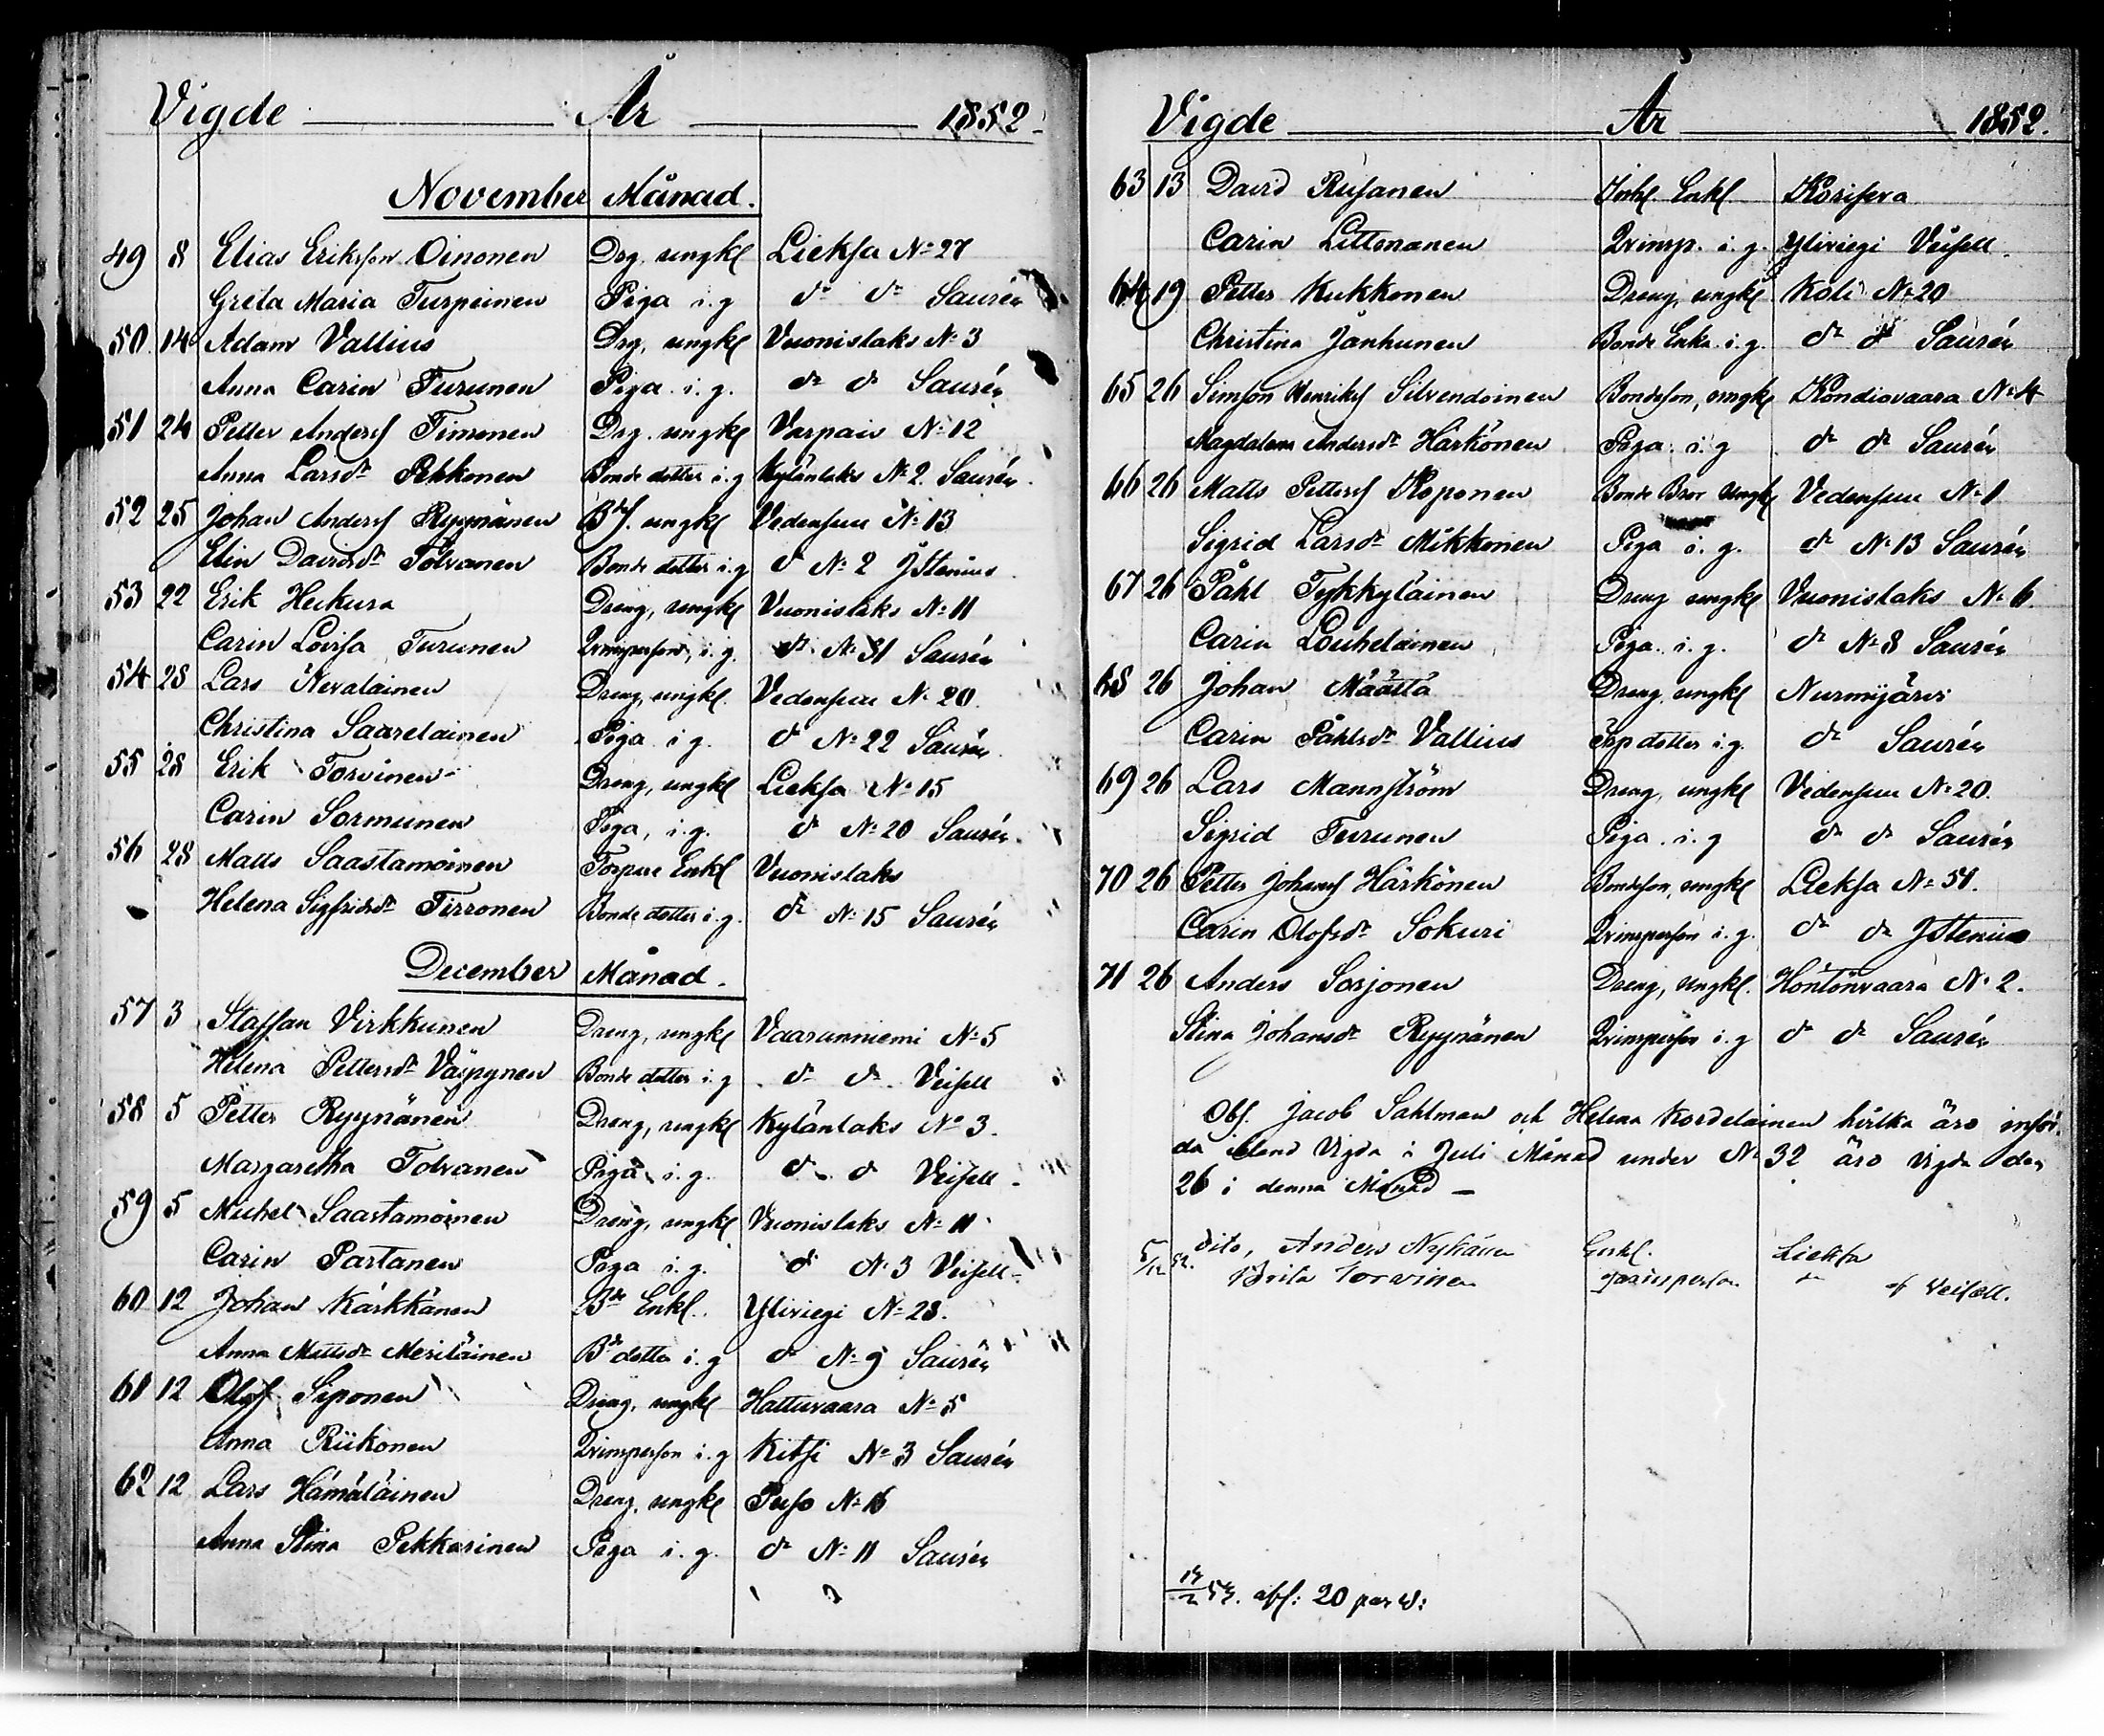 Vigde År 1852
November Månad.
49 8 Elias Eriksson Oinonen Drg. ungkl Lieksa No 27
Greta Maria Turpeinen Piga i.g do do Saurén
50 14 Adam Vallius Drg, ungkl Vuonislaks No 3
Anna Carin Turunen Piga i.g. do do Saurén
51 24 Petter Anderss Timonen Drg. ungkl Varpais No 12
Anna Larsdr Pehkonen Bonde dotter i.g Kylänlaks No 2. Saurén
52 25 Johan Anderss Ryynänen Bds. ungkl Vedensuu No 13
Elin Davidsdr Tolvanen Bonde dotter i.g do No 2 Jsttenius
53 22 Erik Heikura Dreng, ungkl Vuonislaks No 11
Carin Lovisa Turunen Qvinsperson, i.g. do No 31 Saurén
54 28 Lars Nevalainen Dreng, ungkl. Vedensuu No 20.
Christina Saarelainen Piga i g. do No 22 Saurén
55 28 Erik Torvinen Dreng, ungkl Lieksa No 15
Carin Sormunen Piga, i.g. do No 20 Saurén.
56 28 Matts Saastamoinen Torpare Enkl Vuonislaks
Helena Sigfridsdr Tirronen Bonde dotter i.g. do No 15 Saurén
December Månad.
57 3 Staffan Virkkunen Dreng, ungkl Vaaranniemi No 5
Helena Pettersdr Väyrynen Bonde dotter i.g do do Veisell
58 5 Petter Ryynänen Dreng, ungkl Kylänlaks No 3.
Margaretha Tolvanen Piga i.g. do do Veisell
59 5 Michel Saastamoinen Dreng, ungkl Vuonislaks No 11
Carin Partanen Piga i.g. do No 3 Veisell
60 12 Johan Kärkkänen Bde Enkl. Yliviegi No 28.
Anna Mattsdr Meriläinen Bde dotter i.g do No 9 Saurén
61 12 Olof Siponen Dreng, ungkl Hattuvaara No 5
Anna Riikonen Qvinsperson i.g Kitsi No 3 Saurén
62 12 Lars Hämäläinen Dreng, ungkl Puso No 16
Anna Stina Pekkarinen Piga i.g. do No 11 Saurén
Vigde År 1852.
63 13 David Rusanen Inhs. Enkl Koriseva
Carin Littonanen Qvinsp. i.g. Yliviegi Veisell.
64 19 Petter Kukkonen Dreng, ungkl Koli No 20
Christina Jänhunen Bonde Enka i.g. do do Saurén
65 26 Simson Henrikss Silvendoinen Bondeson, ungkl Kondiovaara No 4
Magdalena Andersdr Härkönen Piga i.g do do Saurén
66 26 Matts Petterss Koponen Bonde Bror ungkl Vedensuu No 1
Sigrid Larsdr Mikkonen Piga i.g. do No 13 Saurén
67 26 Påhl Tykkyläinen Dreng ungkl Vuonislaks No 6.
Carin Louhelainen Piga i.g. do No 8 Saurén
68 26 Johan Määttä Dreng ungkl Nurmijärvi
Carin Påhlsdr Vallius Torp dotter i.g. do Saurén
69 26 Lars Mannström Dreng, ungkl Vedensuu No 20.
Sigrid Turunen Piga i.g do do Saurén
70 26 Petter Johanss Härkönen Bondeson, ungkl Lieksa No 51.
Carin Olofsdr Sokuri Qvinsperson i.g. do do Jsttenius
71 26 Anders Sorjonen Dreng, ungkl. Höntönvaara No 2.
Stina Johansdr Ryynänen Qvinsperson i.g do do Saurén
Obs. Jacob Sahlman och Helena Kordelainen hvilka äro inför-
da ibland Vigda i Juli Månad under No 32 äro vigda den
26 i denna Månad —
5/12 52. dito, Anders Nykänen Enkl. Lieksa
Brita Torvinen qvinsperson do af Veisell.
52. afs: 20 par